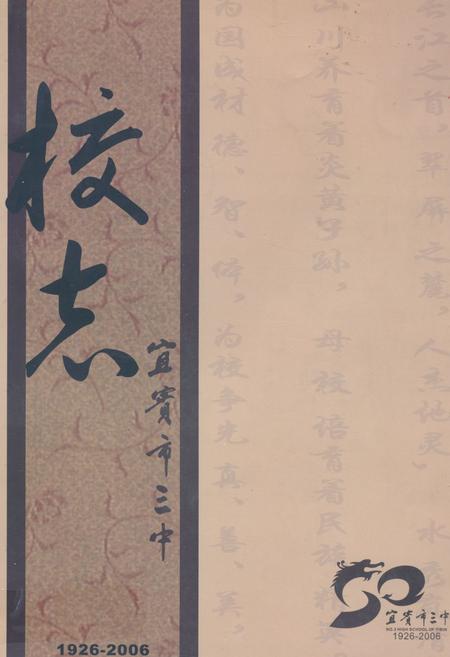 校志
宜賓市三中
1926-2006
长江之首，翠屏之麓，人杰地灵
山川养育着炎黄子孙，母校培育着民族精英
为国成材德、智、体，为校争光真、善、美，
宜賓市三中
NO.3 HIGH SCHOOL OF YIBIN
1926-2006